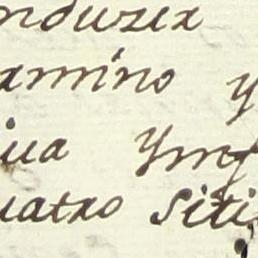 nduzir
amino y
iua Ymf
uatro siti